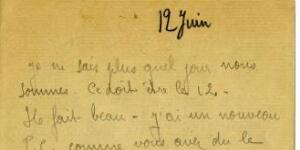 12 Juin
je ne sais plus quel jour nous
sommes. Ce doit être le 12 -
Il fait beau - j'ai un nouveau
comme vous avez du le